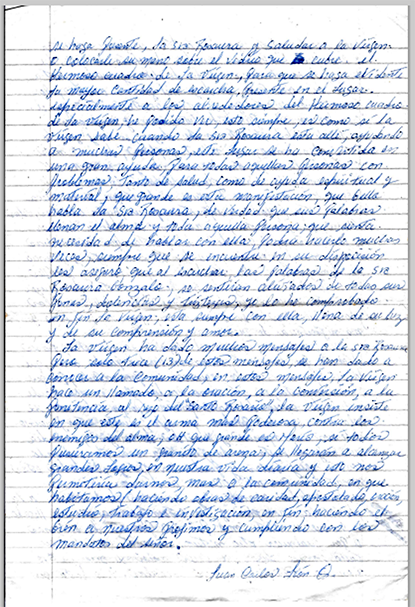 se haga presente, la sra Rosaura y saludar a la Virgen
o colocarle su mano sobre el vidrio que cubre el
hermoso cuadro de la Virgen, para que se haga evidente
la mayor cantidad de escarcha, presente en el lugar
especialmente a los alrededores del hermoso cuadro
de la Virgen; he podido ver, esto siempre, es como si la
Virgen sabe, cuando la sra Rosaura esta alli, ayudando
a muchas personas, este lugar se ha convertido en
una gran ayuda, para todas aquellas personas con
problemas, tanto de salud, como de ayuda espiritual y
material, que grande es esta manifestación, que bello
habla la sra Rosaura, de verdad que sus palabras
llenan el alma y toda aquella persona, que sienta
necesidad de hablar con ella, podra hacerlo muchas
veces, siempre que se encuentre en su disposición
les aseguro que al escuchar, las palabras de la sra
Rosaura Gonzalo, se sentiran aliviados de todas sus
penas, dolencias y tristezas, yo lo he comprobado
en fin la Virgen, Va siempre con ella, llena de su luz
y de su comprensión y amor.
La Virgen ha dado muchos mensajes a la sra Rosaura
pero solo trece (13) de estos mensajes, se han dado a
conocer a la comunidad, en estos mensajes, la Virgen
hace un llamado, a la oración, a la conversión, a la
penitencia, al rezo del "Santo Rosario", la Virgen insiste
en que este es el arma más poderosa, contra los
enemigos del alma; que grande es Dios, si todos
pusieramos un granito de arena, se llegarán a alcanzar
grandes logros, en nuestra vida diaria y esto nos
permitiria darnos, mas a la comunidad, en que
habitamos, haciendo obras de caridad, apostolado,
estudio, trabajo e in haciendo el
bien a nuestros projimos y cumpliendo con los
mandatos del señor.
Juan Carlos